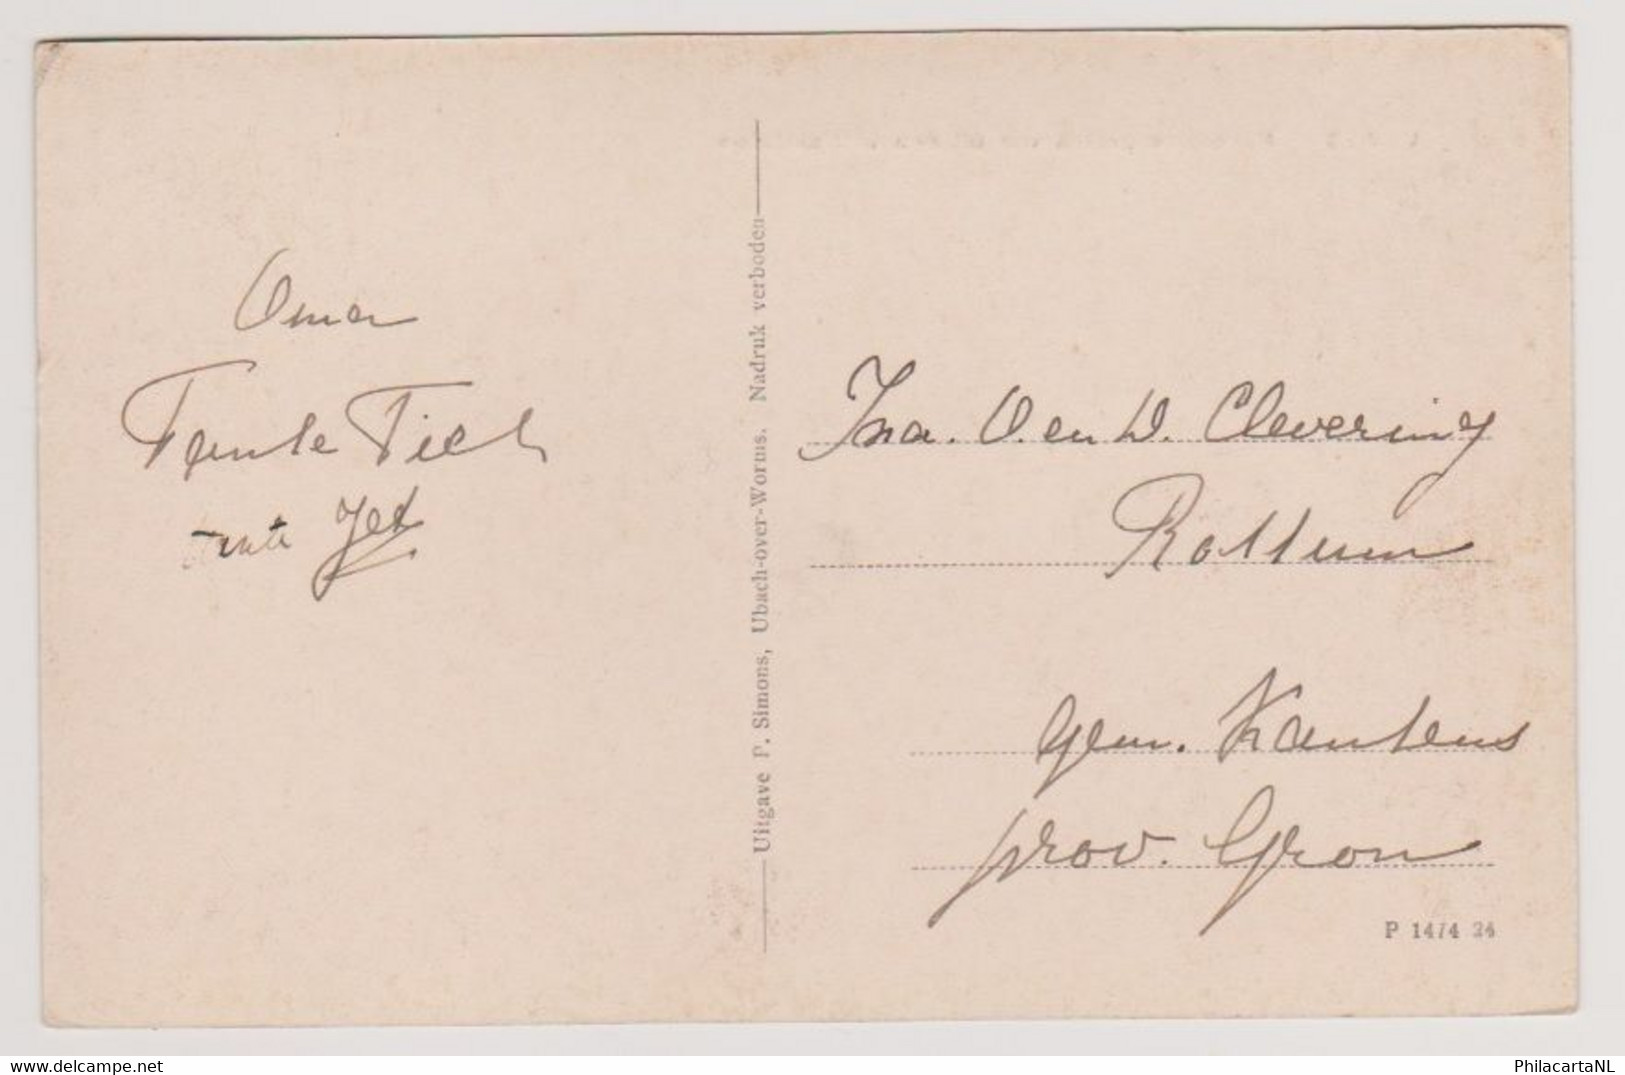 Oma
Tante Fiet
tante Jet
Uitgave P. Simons, Ubach-over-Worms. Nadruk verboden
Ina. O. en W. Clevering
Rottum
gem. Kantens
prov. Gron
P 1474 24
https://www.delcampe.net
PhilacartaNL